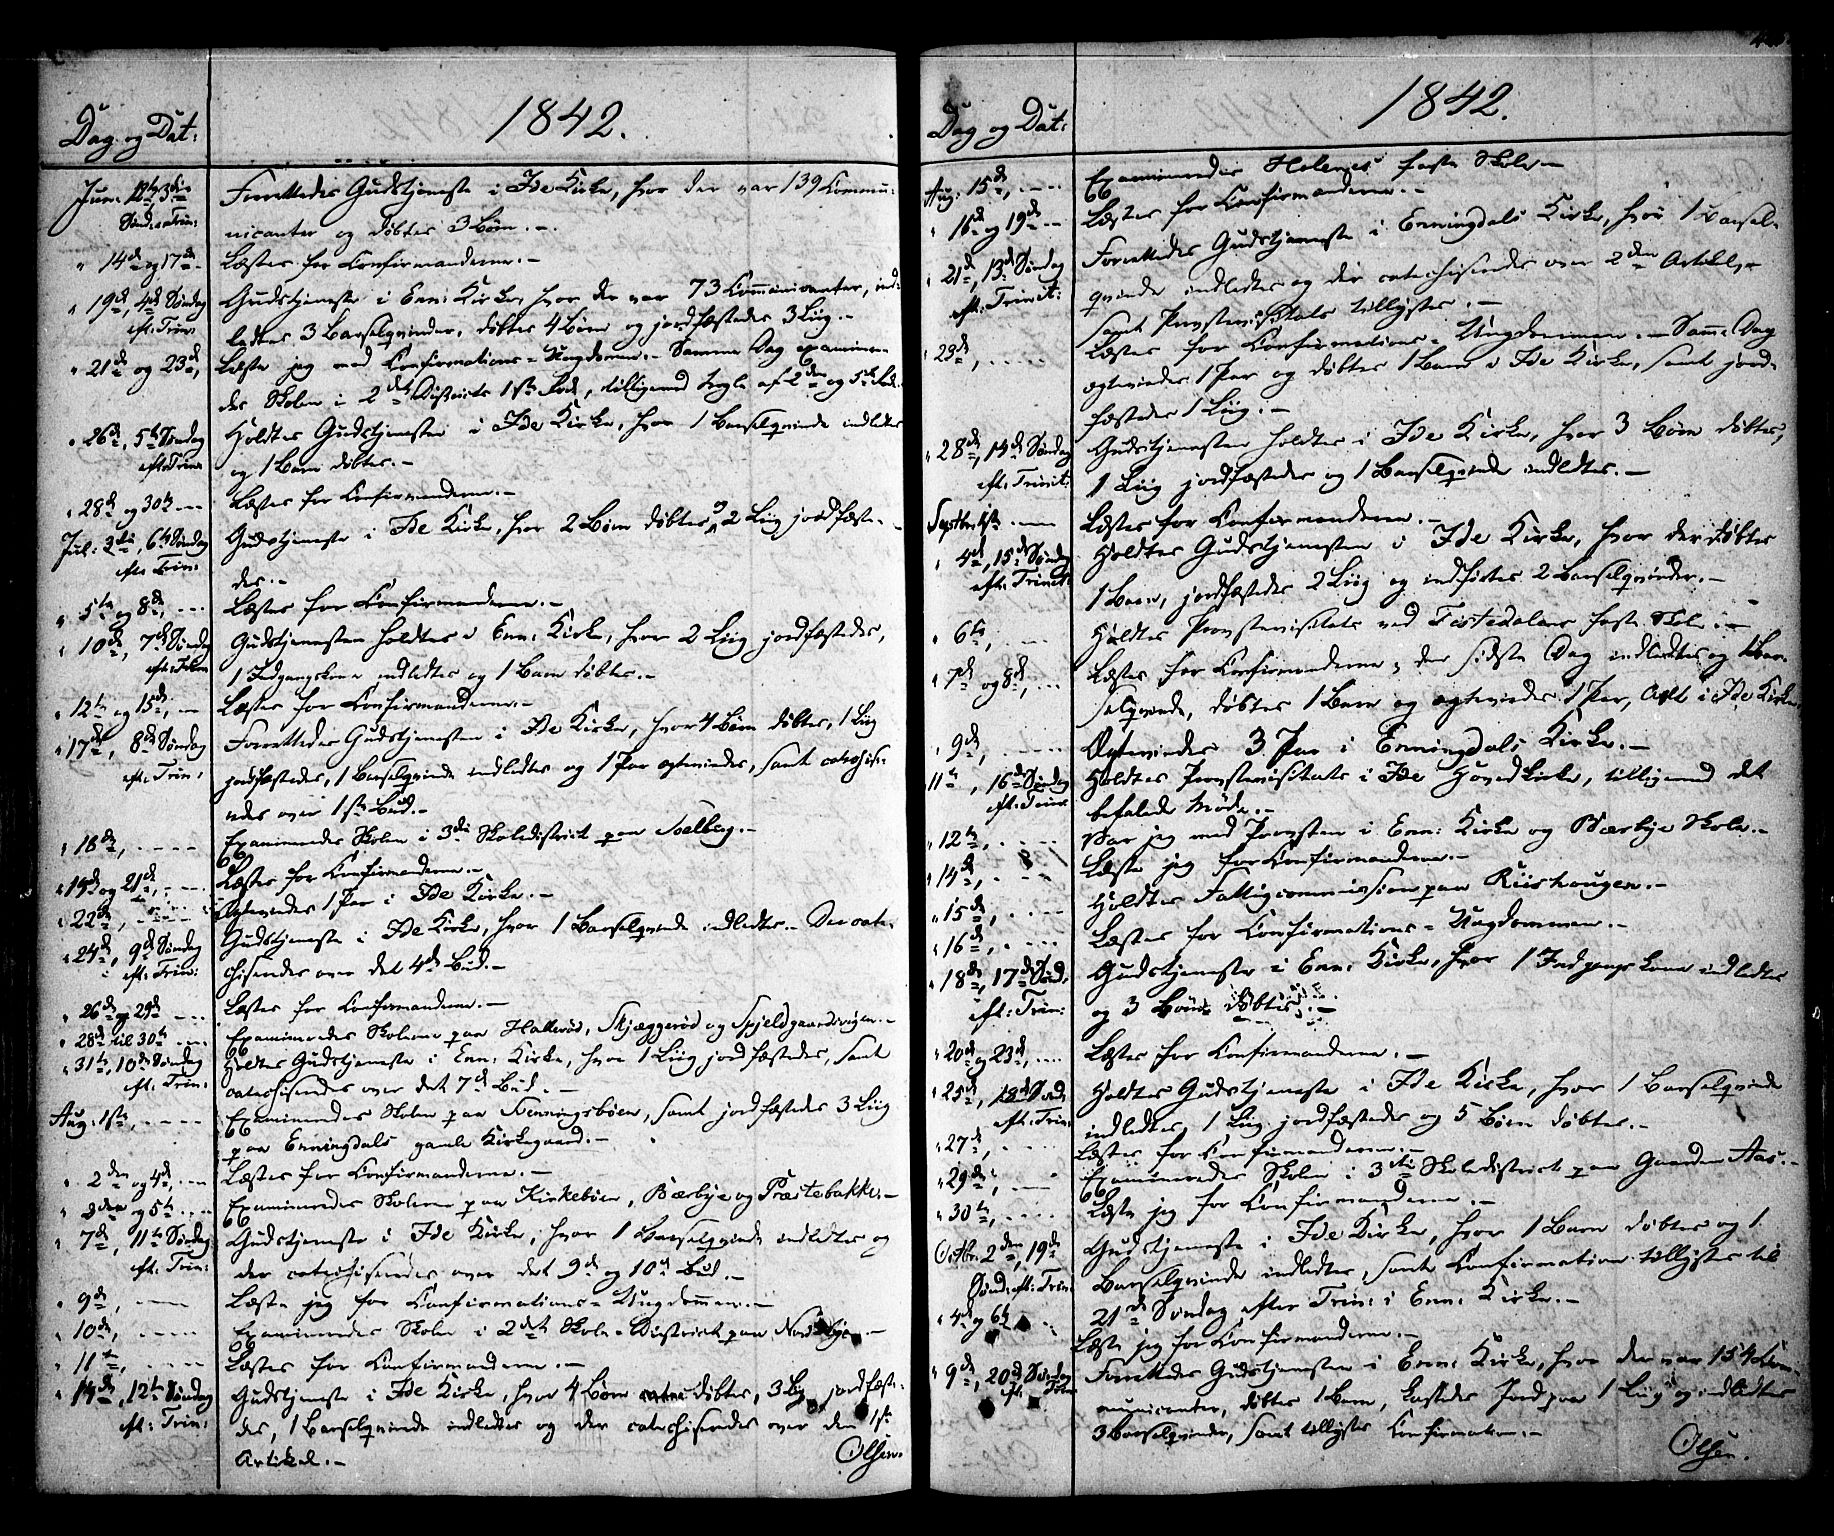 Dag og Dat:
1842.
Jun: 12te 3die
Forrettedes Gudstjeneste i Ide Kirke, hvor der var 139 Commu-
Sønd: e: Trin:
nicanter og døbtes 3 Børn.-
" 14de og 17de -
Læstes for Confirmanderne.-
" 19de, 4de Søndag
Gudstjeneste i Enn: Kirke, hvor der var 73 Communicanter, ind-
eft: Trin:
ledtes 3 Barselqvinder, døbtes 4 Børn og jordfæstedes 3 Liig.-
" 21de og 23de,
Læste jeg med Confirmations-Ungdommen.- Samme Dag examinere-
des Skolen i 2det Districts 1ste Rode, tilligemed af 2den og 5te Rode.
" 26de, 5te Søndag
Holdtes Gudstjenesten i Ide Kirke, hvor 1 Barselqvinde indledtes
eft: Trin:
og 1 Barn døbtes.-
" 28de og 30te ---
Læstes for Confirmanderne.-
Jul: 3die, 6te Søndag
Gudstjeneste i Ide Kirke, hvor 2 Børn døbtes og 2 Liig jordfæste-
eft: Trin:
des.-
" 5te og 8de, ---
Læstes for Confirmanderne.-
" 10de, 7de Søndag
Gudstjenesten holdtes i Enn: Kirke, hvor 2 Liig jordfæstedes,
eft: Trin:
1 Indgangskone indledtes og 1 Barn døbtes.-
" 12te og 15de, --
Læstes for Confirmanderne.-
" 17de, 8de Søndag
Forrettedes Gudstjenesten i Ide Kirke, hvor 4 Børn døbtes, 1 Liig
eft: Trin:
jordfæstedes, 1 Barselqvinde indledtes og 1 Par ægteviedes, samt catechise-
redes over 1ste Bud.-
" 18de, ----
Examineredes Skolen i 3die Skoledistrict paa Soelberg.-
" 19de og 21de, ---
Læstes for Confirmanderne.-
" 22de, ----
Ægteviedes 1 Par i Ide Kirke.-
" 24de, 9de Søndag
Gudstjeneste i Ide Kirke, hvor 1 Barselqvinde indledtes.- Der cate-
eft: Trin:
chiseredes over det 4de Bud.-
" 26de og 29de ---
Læstes for Confirmanderne.-
" 28de til 30te ---
Examineredes Skolerne paa Hallerød, Skjæggerød og Spjeldgaardsvigen.-
" 31te, 10de Søndag
Holdtes Gudstjeneste i Enn: Kirke, hvor 1 Liig jordfæstedes, samt
eft: Trin:
catechiseredes over det 7de Bud.-
Aug: 1ste, ----
Examineredes Skolen paa Henningsbøen, samt jordfæstedes 3 Liig
paa Enningdals gamle Kirkegaard.-
" 2den og 4de, ---
Læstes for Confirmanderne.-
" 3die og 5te ---
Examineredes Skolerne paa Kirkebøen, Bærbye og Præstebakke.-
" 7de, 11te Søndag
Gudstjeneste i Ide Kirke, hvor 1 Barselqvinde indledtes og
eft: Trin:
der catechiseredes over det 9de og 10de Bud.-
" 9de, ----
Læste jeg for Confirmations-Ungdommen.-
" 10de, ----
Examineredes Skolen i 2det Skole-District paa Nordbye.-
" 11te, ----
Læstes for Confirmanderne.-
" 14de, 12te Søndag
Gudstjeneste i Ide Kirke, hvor 4 Børn døbtes, 3 Liig jordfæste-
eft: Trin:
des, 1 Barselqvinde indledtes og der catechiseredes over den 1ste
Artikel.-
Olsen.
Dag og Dat:
1842.
Aug: 15de, ----
Examineredes Holenes faste Skole.-
" 16de og 19de --
Læstes for Confirmanderne.-
" 21de, 13de Søndag
Forrettedes Gudstjeneste i Enningdals Kirke, hvor 1 Barsel-
eft: Trinit:
qvinde indledtes og der catechiseredes over 2den Artikel,-
samt Provstevisitats tillystes.-
" 23de, ----
Læstes for Confirmations-Ungdommen.- Samme Dag
ægteviedes 1 Par og døbtes 1 Barn i Ide Kirke, samt jord-
fæstedes 1 Liig.-
" 28de, 14de Søndag
Gudstjenesten holdtes i Ide Kirke, hvor 3 Børn døbtes,
eft: Trinit:
1 Liig jordfæstedes og 1 Barselqvinde indledtes.-
Septbr: 1ste ----
Læstes for Confirmanderne.-
" 4de, 15de Søndag
Holdtes Gudstjenesten i Ide Kirke, hvor der døbtes
eft: Trinit:
1 Barn, jordfæstedes 2 Liig og indførtes 2 Barselqvinder.-
" 6te, ----
Holdtes Provstevisitats ved Tistedalens faste Skole.-
" 7de og 8de, ---
Læstes for Confirmanderne; den sidste Dag indledtes og 1 Bar-
selqvinde, døbtes 1 Barn og ægteviedes 1 Par, Alt i Ide Kirke.
" 9de, ----
Ægteviedes 3 Par i Enningdals Kirke.-
11te, 16de Søndag
Holdtes Provstevisitats i Ide Hovedkirke, tilligemed det
eft: Trin:
befalede Møde.-
" 12te, ----
Var jeg med Provsten i Enn: Kirke og Bærbye Skole.-
" 14de, ----
Læste jeg for Confirmanderne.-
" 15de, ----
Holdtes Fattigcommission paa Riishougen.-
" 16de, ----
Læstes for Confirmations-Ungdommen.-
" 18de, 17de Sønd.
Gudstjeneste i Enn: Kirke, hvor 1 Indgangskone indledtes
eft: Trin:
og 3 Børn døbtes.-
" 20de og 23de, ---
Læstes for Confirmanderne.-
" 25de, 18de Sønd.
Holdtes Gudstjeneste i Ide Kirke, hvor 1 Barselqvinde
eft: Trin:
indledtes, 1 Liig jordfæstedes og 5 Børn døbtes.-
" 27de, ----
Læstes for Confirmanderne.-
" 29de, ----
Examineredes Skolen i 3die Skoledistrict paa Gaarden Aas.-
" 30te, ----
Læste jeg for Confirmanderne.-
Octbr: 2den, 19de
Gudstjeneste i Ide Kirke, hvor 1 Barn døbtes og 1
Sønd: eft: Trin:
Barselqvinde indledtes, samt Confirmation tillystes til
21de Søndag efter Trin: i Enn: Kirke.-
" 4de og 6te
Læste jeg for Confirmanderne.-
" 9de, 20de Søndag
Forrettedes Gudstjenesten i Enn: Kirke, hvor der var 154 Com-
eft: Trin:
municanter, døbtes 1 Barn, kastedes Jord paa 1 Liig og indledtes
3 Barselqvinder, samt tillystes Confirmation.-
Olsen.